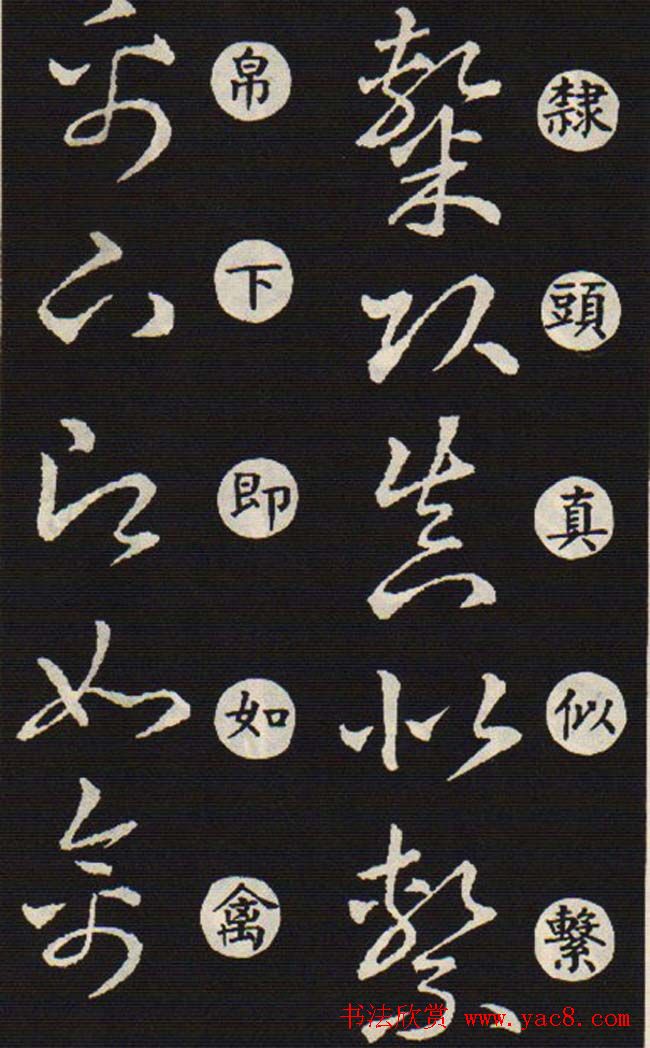 隸頭真似繫
帛下即如禽
书法欣赏 www.yac8.com